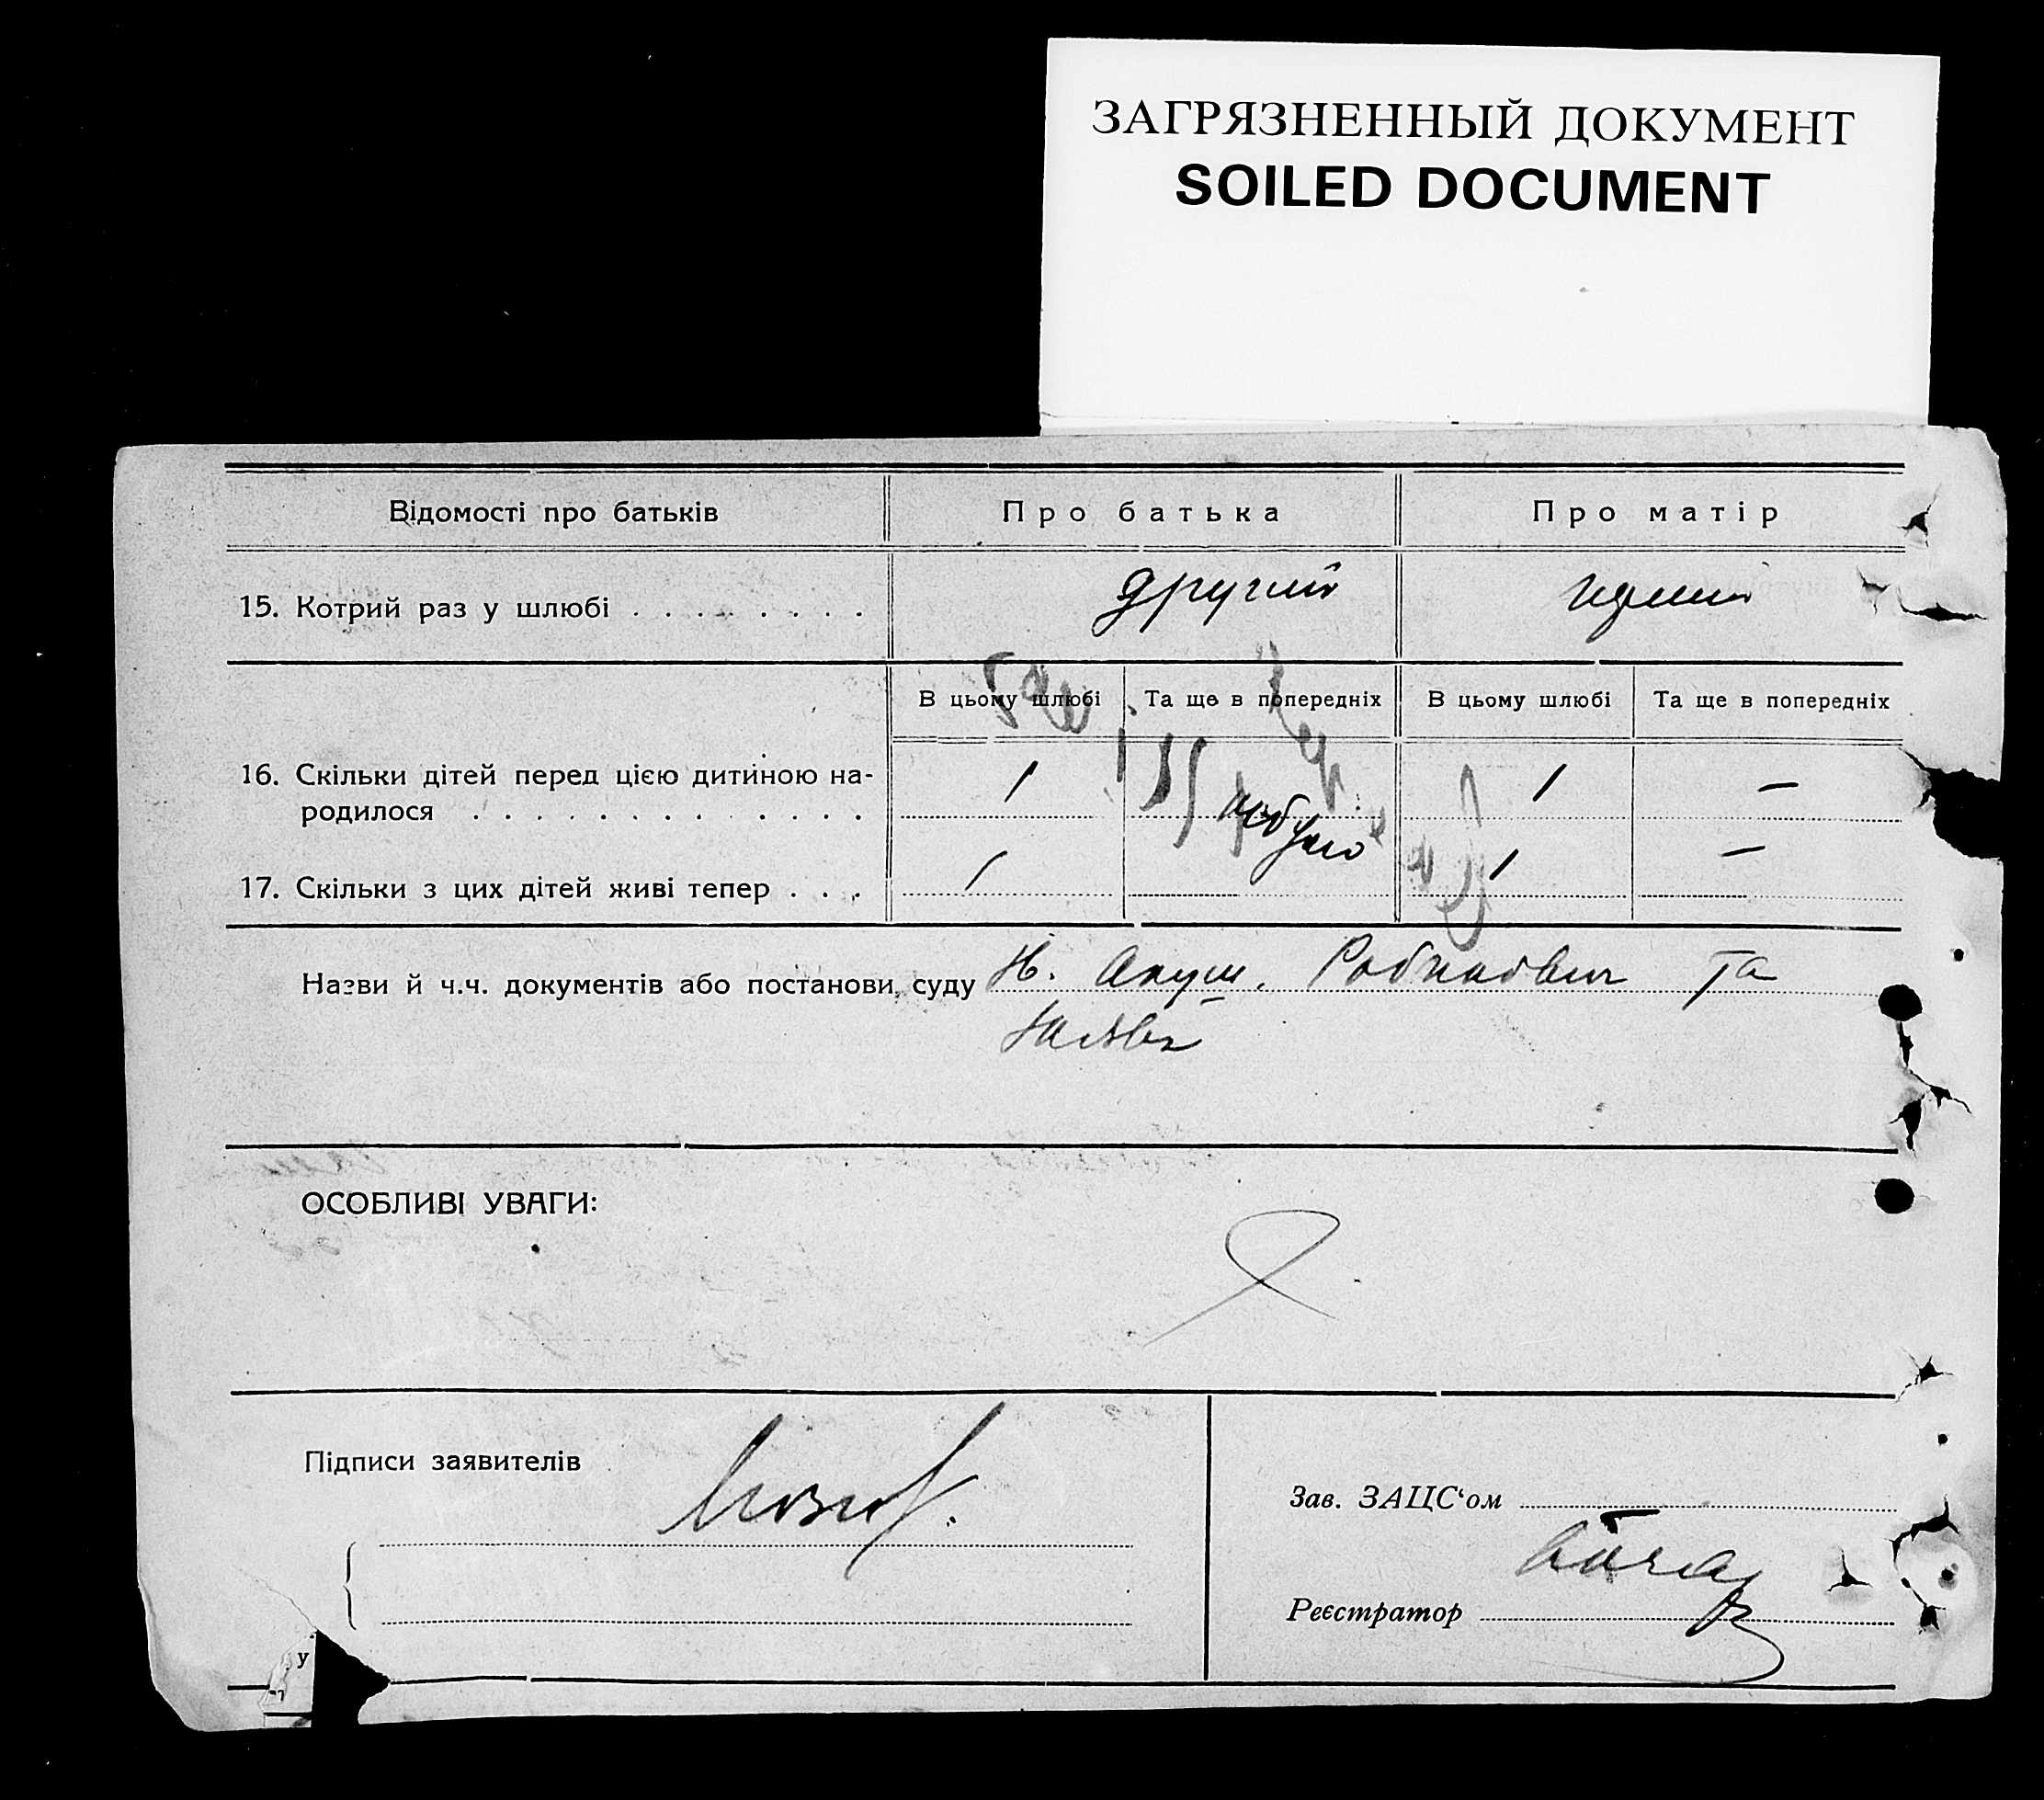 ЗАГРЯЗНЕННЫЙ ДОКУМЕНТ
SOILED DOCUMENT
Відомості про батьків Про батька Про матір
15. Котрий раз у шлюбі . . . . . . . . другий
В цьому шлюбі Та ще в попередніх В цьому шлюбі Та ще в попередніх
16. Скільки дітей перед цією дитиною на- 1 1 —
родилося . . . . . . . . . . . . .
17. Скільки з цих дітей живі тепер . . . 1 1 —
Назви й ч.ч. документів або постанови суду Н. Акуш. та
ОСОБЛИВІ УВАГИ:
Підписи заявителів
Зав. ЗАЦС‘ом
Реєстратор